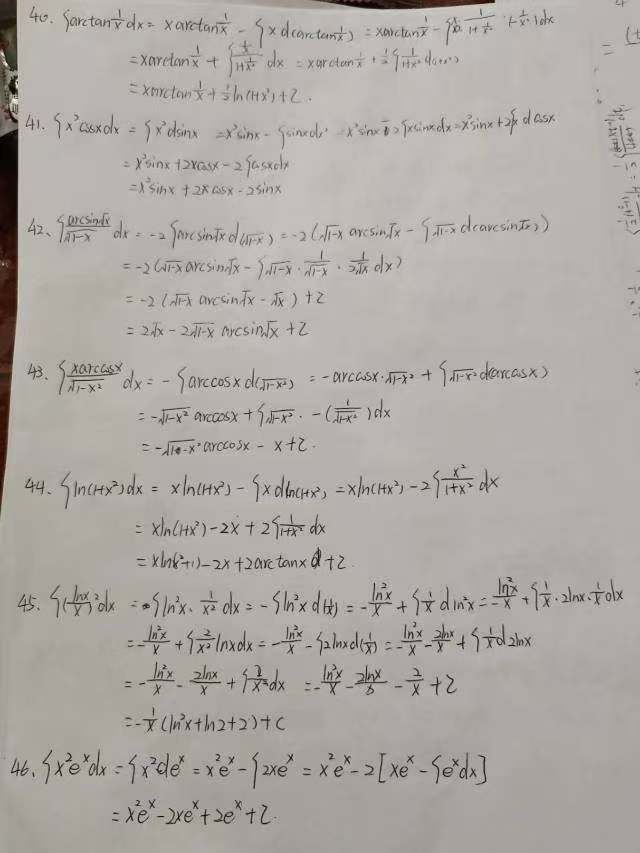 40. ∫arctan 1/x dx = xarctan 1/x - ∫x d(arctan 1/x) = xarctan 1/x - ∫x · 1/(1+1/x²) · (-1/x²)dx
= xarctan 1/x + ∫ (1/x)/(1+1/x²) dx = xarctan 1/x + 1/2 ∫ 1/(1+x²) d(1+x²)
= xarctan 1/x + 1/2 ln(1+x²) + C.
41. ∫x²cosxdx = ∫x²dsinx = x²sinx - ∫sinxdx² = x²sinx - 2∫xsinxdx = x²sinx + 2∫x dcosx
= x²sinx + 2xcosx - 2∫cosxdx
= x²sinx + 2xcosx - 2sinx
42. ∫ arcsin√x/√(1-x) dx = -2∫arcsin√x d(√(1-x)) = -2(√(1-x) arcsin√x - ∫√(1-x) d(arcsin√x))
= -2(√(1-x) arcsin√x - ∫√(1-x) · 1/√(1-x) · 1/(2√x) dx)
= -2(√(1-x) arcsin√x - √x) + C
= 2√x - 2√(1-x) arcsin√x + C
43. ∫ xarccosx/√(1-x²) dx = -∫arccosx d(√(1-x²)) = -arccosx·√(1-x²) + ∫√(1-x²) d(arccosx)
= -√(1-x²) arccosx + ∫√(1-x²) · -(1/√(1-x²))dx
= -√(1-x²) arccosx - x + C.
44. ∫ln(1+x²)dx = xln(1+x²) - ∫x dln(1+x²) = xln(1+x²) - 2∫ x²/(1+x²) dx
= xln(1+x²) - 2x + 2∫ 1/(1+x²) dx
= xln(x²+1) - 2x + 2arctanx + C.
45. ∫(lnx/x)²dx = ∫ln²x · 1/x² dx = -∫ln²x d(1/x) = -ln²x/x + ∫1/x dln²x = -ln²x/x + ∫1/x · 2lnx · 1/x dx
= -ln²x/x + ∫2/x² lnxdx = -ln²x/x - ∫2lnxd(1/x) = -ln²x/x - 2lnx/x + ∫1/x d2lnx
= -ln²x/x - 2lnx/x + ∫2/x² dx = -ln²x/x - 2lnx/x - 2/x + C
= -1/x (ln²x + ln2 + 2) + C
46. ∫x²eˣdx = ∫x²deˣ = x²eˣ - ∫2xeˣ = x²eˣ - 2[xeˣ - ∫eˣdx]
= x²eˣ - 2xeˣ + 2eˣ + C.